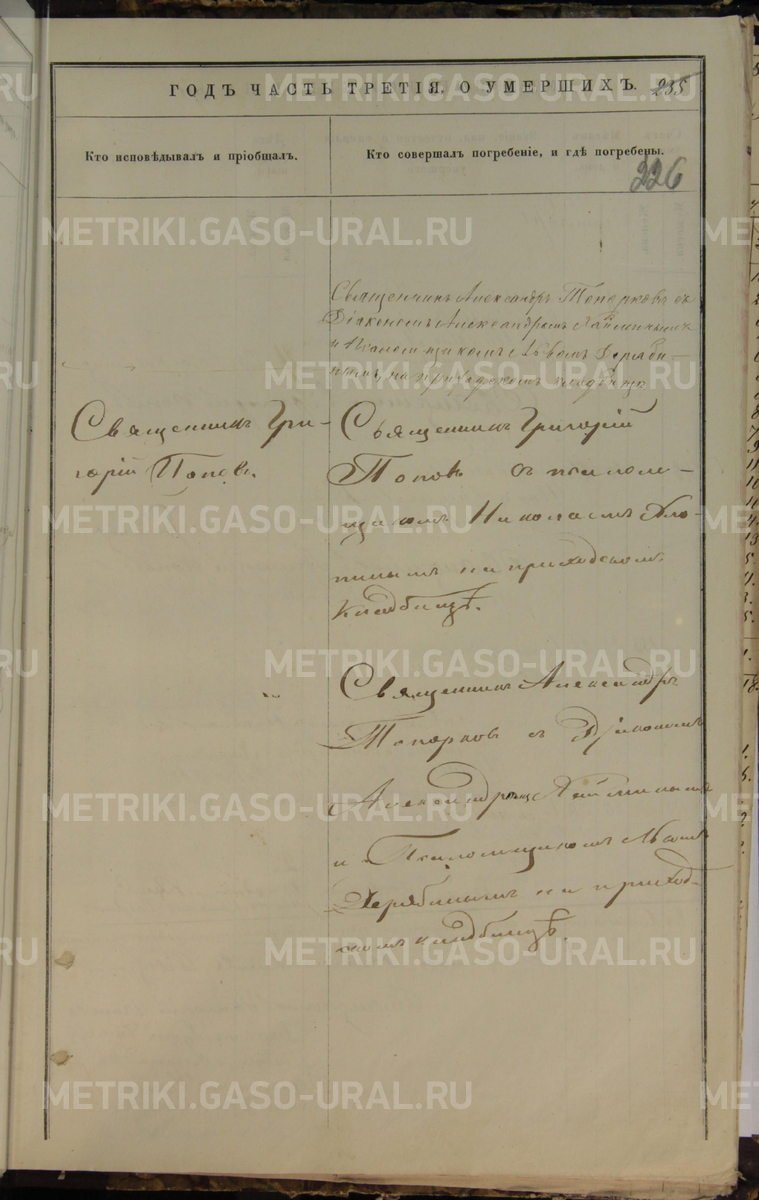 ГОДЪ ЧАСТЬ ТРЕТІЯ, О УМЕРШИХЪ. 235
Кто исповѣдывалъ и пріобщалъ.
Кто совершалъ погребеніе, и гдѣ погребены.
226
Священникъ Александръ Топорковъ съ
Діакономъ Александромъ
и Псаломщикомъ Львомъ Деряби-
нымъ, на приходскомъ кладбище
Священникъ Гри-
горій Поповъ.
Священникъ Григорій
Поповъ съ псалом-
щикомъ Николаемъ
на приходскомъ
кладбищѣ.
Священникъ Александръ
Топорковъ съ Діакономъ
Александромъ
и Псаломщикомъ Львомъ
Дерябинымъ на приход-
скомъ кладбищѣ.
METRIKI.GASO-URAL.RU